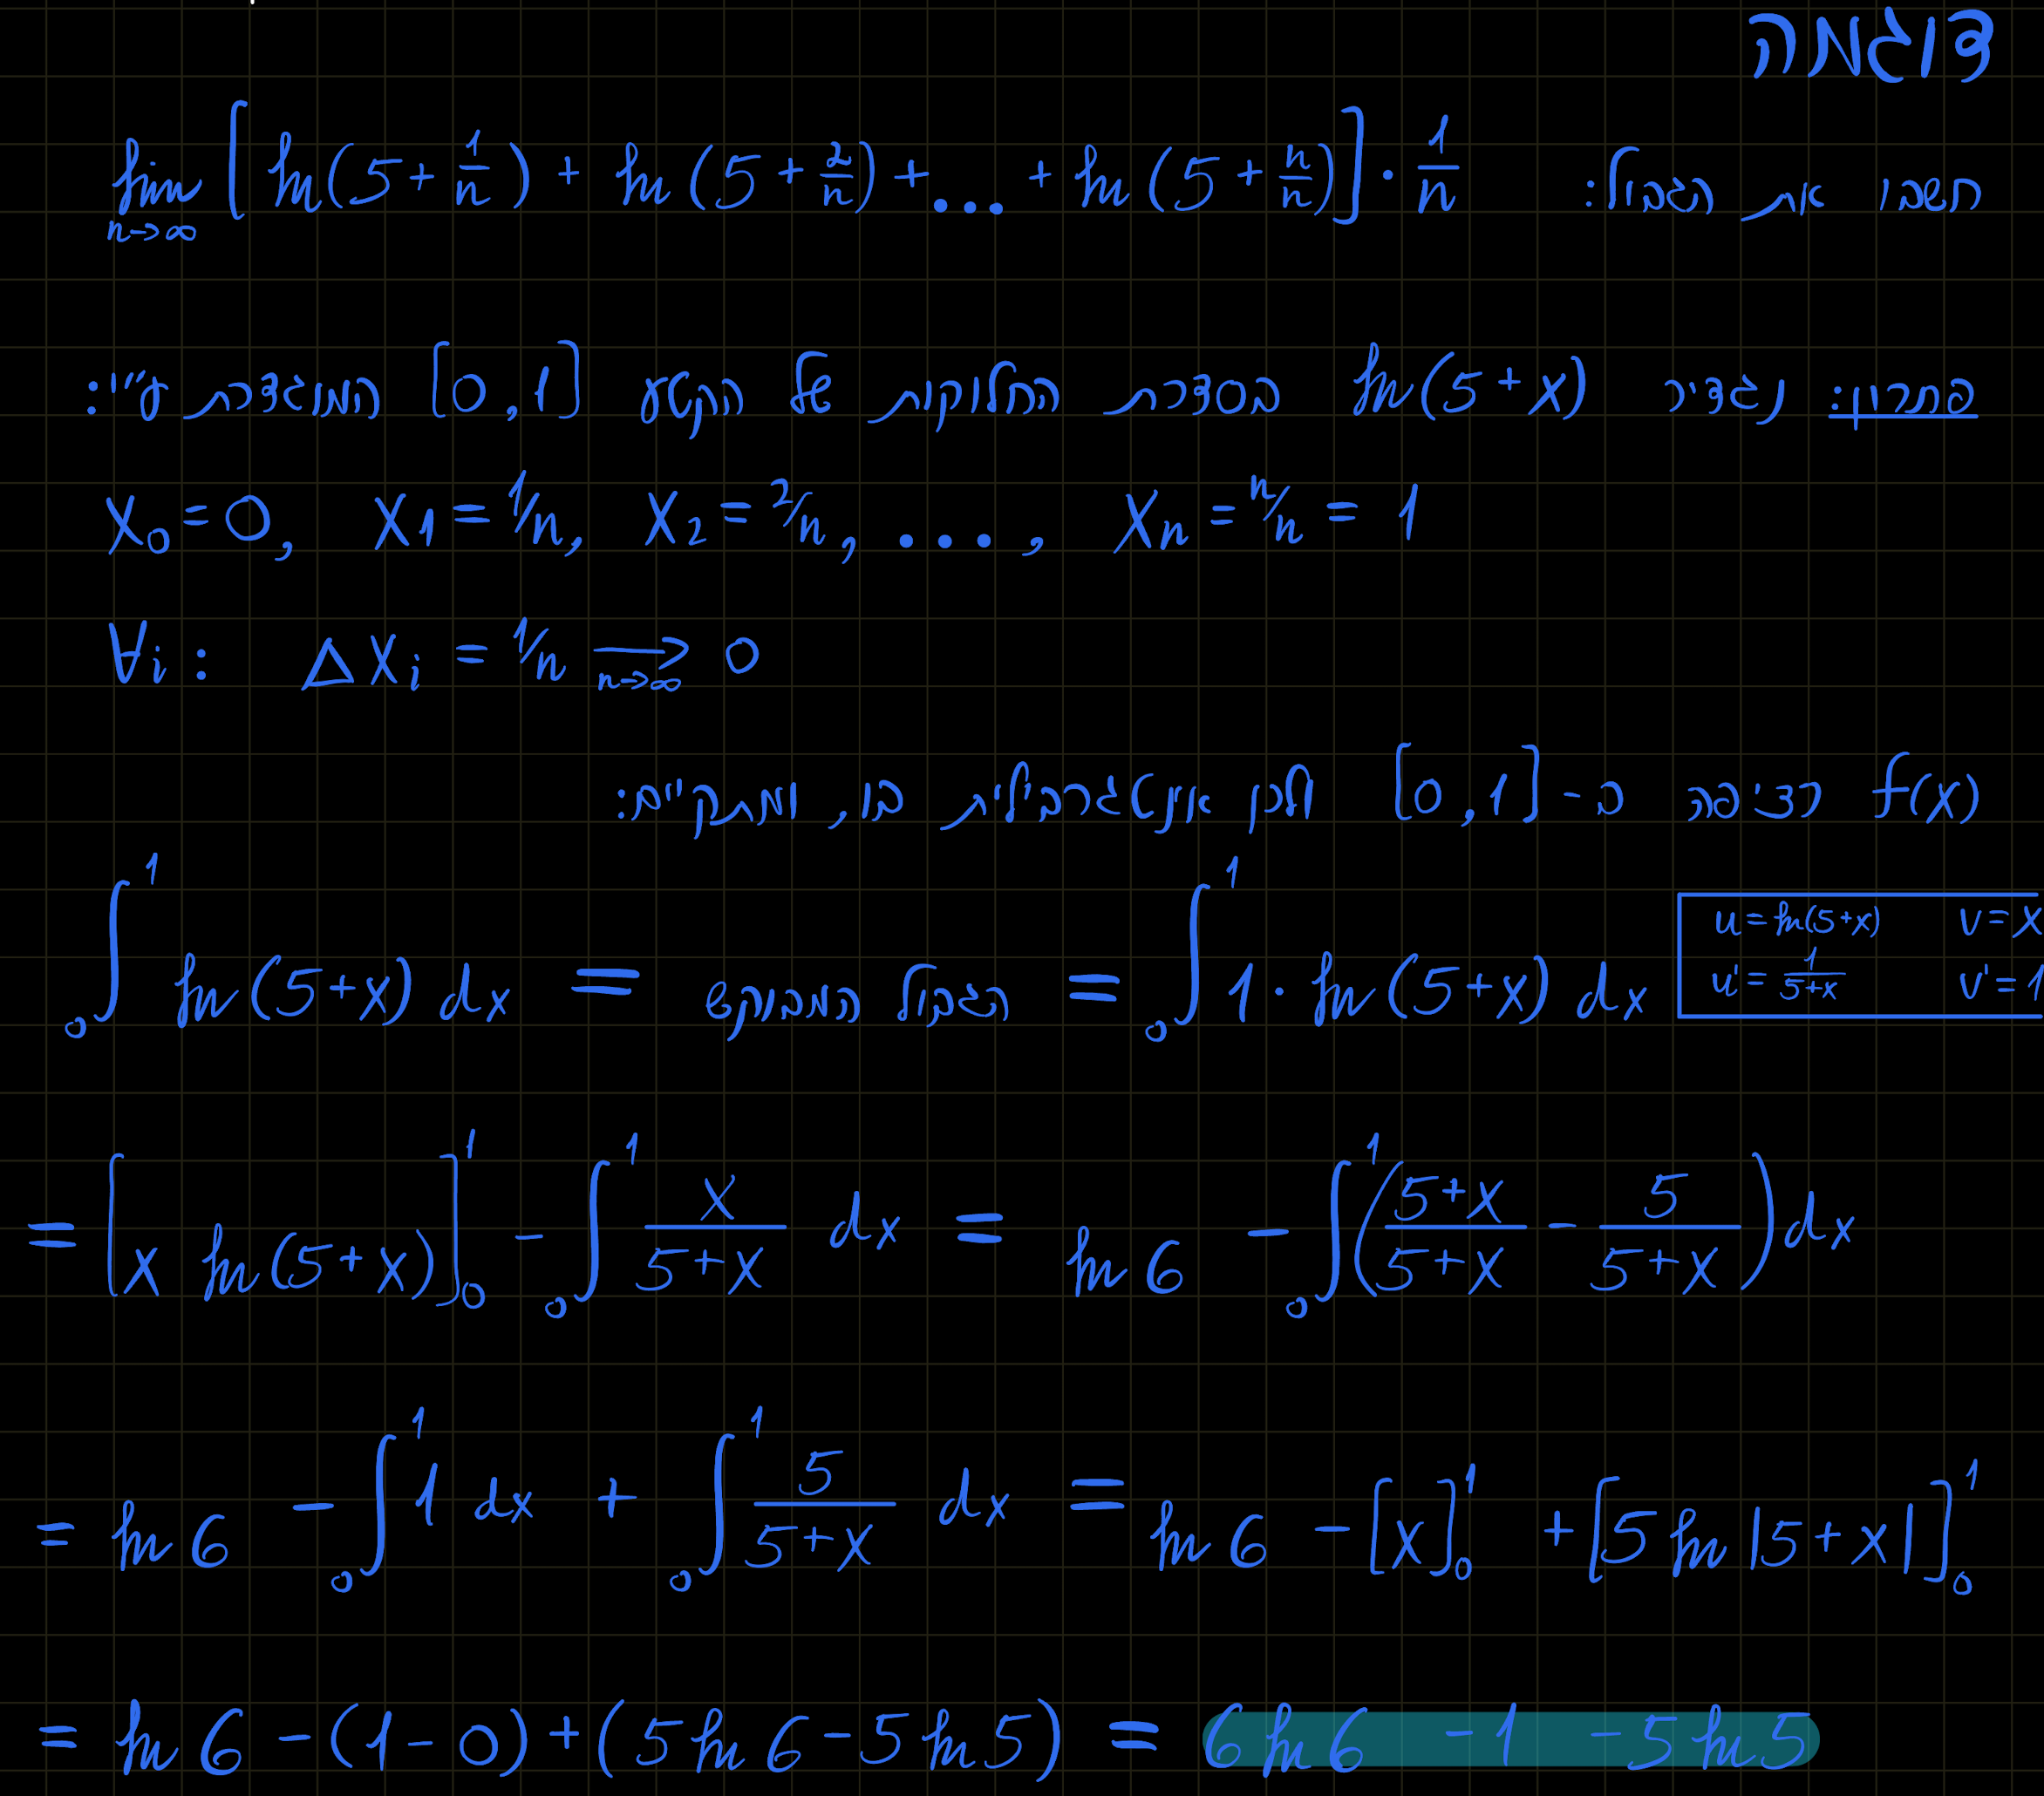 דוגמה
חשבו את הגבול: lim n→∞ [ln(5+1/n) + ln(5+2/n) + ... + ln(5+n/n)] · 1/n
פתרון: נגדיר ln(5+x) בסדרת החלוקות של הקטע [0,1] המוגדרת ע"י:
x₀=0, x₁=1/n, x₂=2/n, ..., xₙ=n/n=1
∀i: Δxᵢ = 1/n →(n→∞) 0
f(x) רציפה ב-[0,1] ולכן אינטגרבילית בו, ומתקיים:
∫₀¹ ln(5+x) dx = הגבול המבוקש = ∫₀¹ 1·ln(5+x) dx
u=ln(5+x) v=x
u'=1/(5+x) v'=1
= [x ln(5+x)]₀¹ - ∫₀¹ x/(5+x) dx = ln6 - ∫₀¹ ((5+x)/(5+x) - 5/(5+x)) dx
= ln6 - ∫₀¹ 1 dx + ∫₀¹ 5/(5+x) dx = ln6 - [x]₀¹ + [5ln|5+x|]₀¹
= ln6 - (1-0) + (5ln6 - 5ln5) = 6ln6 - 1 - 5ln5